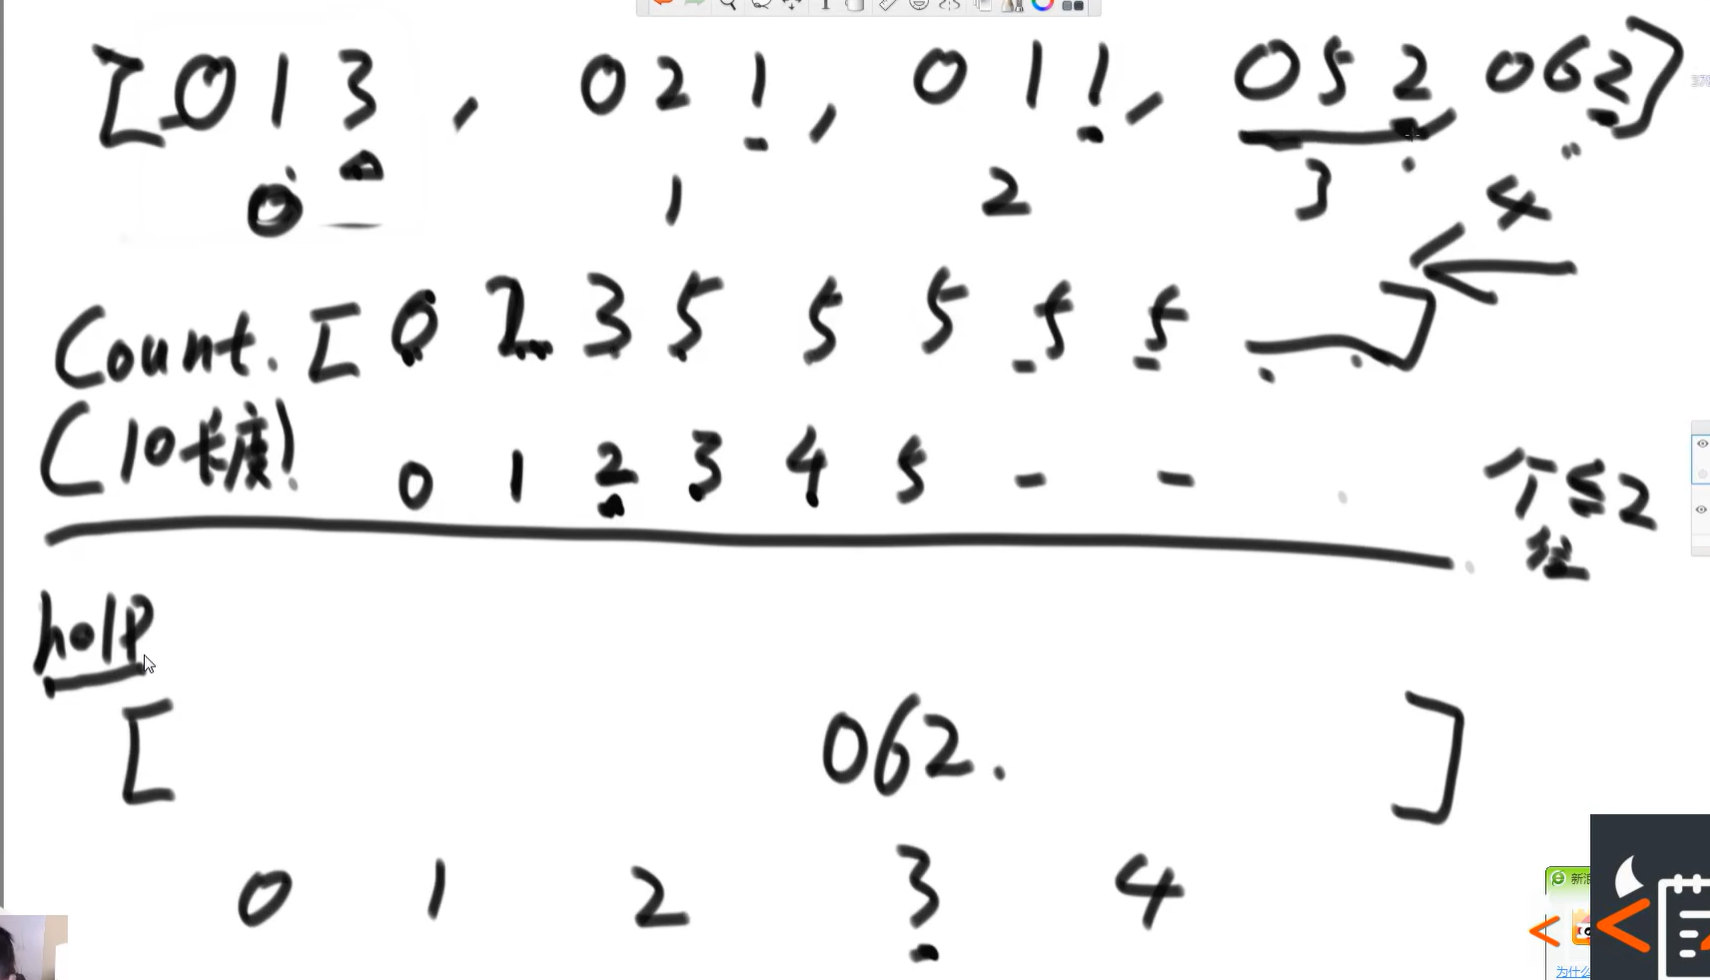 [013, 021, 011, 052, 062]
0 1 2 3 4
Count. [0 2 3 5 5 5 5 5 ]
(10长度) 0 1 2 3 4 5 - -
个≤2
help
[ 062. ]
0 1 2 3 4
新浪
为什么